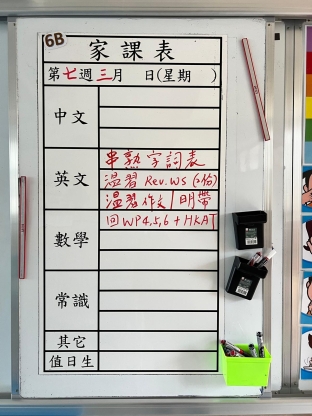 6B
家課表
第七週三月 日(星期 )
中文
英文
串熟字詞表
溫習 Rev. WS (2份)
溫習作文/明帶
數學
回WP4,5,6 + HKAT
常識
其它
值日生